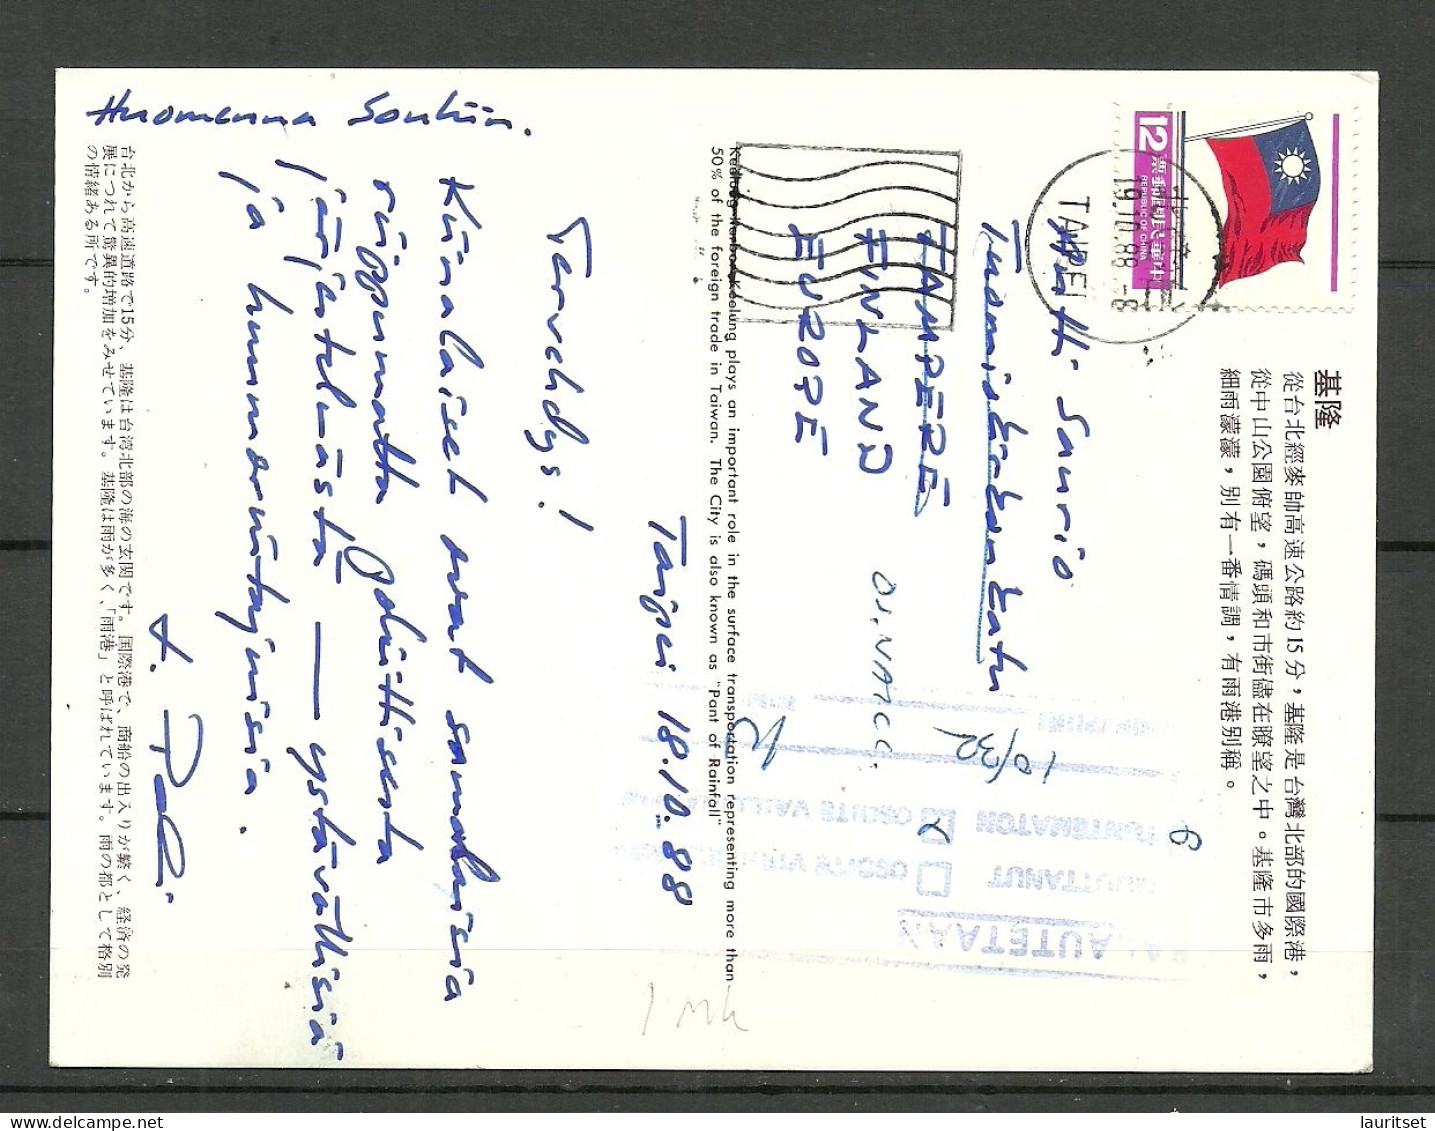 Huomenna Souliin.
Taipei 18.10.88
Tervehdys!
Kiinalaiset ovat samanlaisia
riippumatta poliittisesta
järjestelmästä — ystävällisiä
ja hunnoruutajuisia.
t.
12
票郵國民華中
REPUBLIC OF CHINA
19.10.88.-8
TAIPEI
Matti Saurio
TAMPERE
FINLAND
EUROPE
10/32
6
PALAUTETAAN
MUUTTANUT
TUNTEMATON
OSOITE
1 mk
Keelung Harbor, Keelung plays an important role in the surface transportation representing more than
50% of the foreign trade in Taiwan. The City is also known as "Pant of Rainfall"
基隆
從台北經麥帥高速公路約15分，基隆是台灣北部的國際港，
從中山公園俯望，碼頭和市街儘在瞭望之中。基隆市多雨，
細雨濛濛，別有一番情調，有雨港別稱。
台北から高速道路で15分、基隆は台湾北部の海の玄関です。国際港で、商船の出入りが繁く、経済の発
展につれて驚異的増加をみせています。基隆は雨が多く、「雨港」と呼ばれています。雨の都として格別
の情緒ある所です。
lauritset